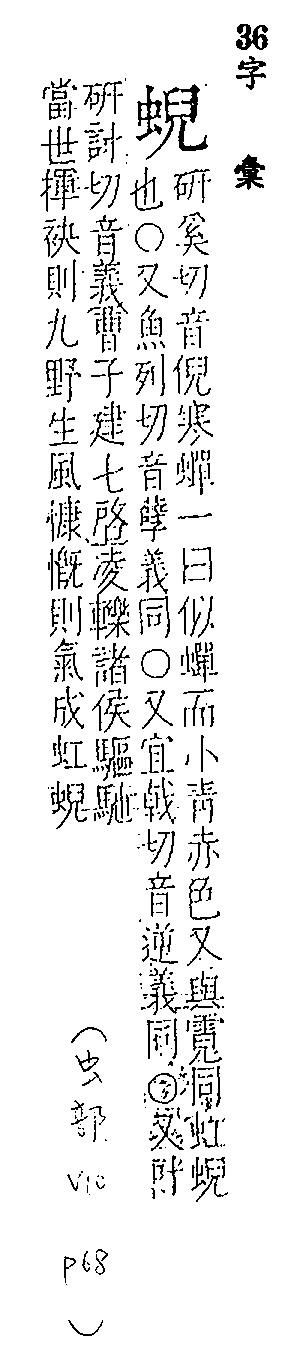 36字 彙
蜺
研奚切音倪寒蟬一曰似蟬而小青赤色又與霓同虹蜺
也○又魚列切音孽義同○又宜戟切音逆義同 又
研討切音義曹子建七啓凌轢諸侯驅馳
當世揮袂則九野生風慷慨則氣成虹蜺
(虫部 V10 P68)